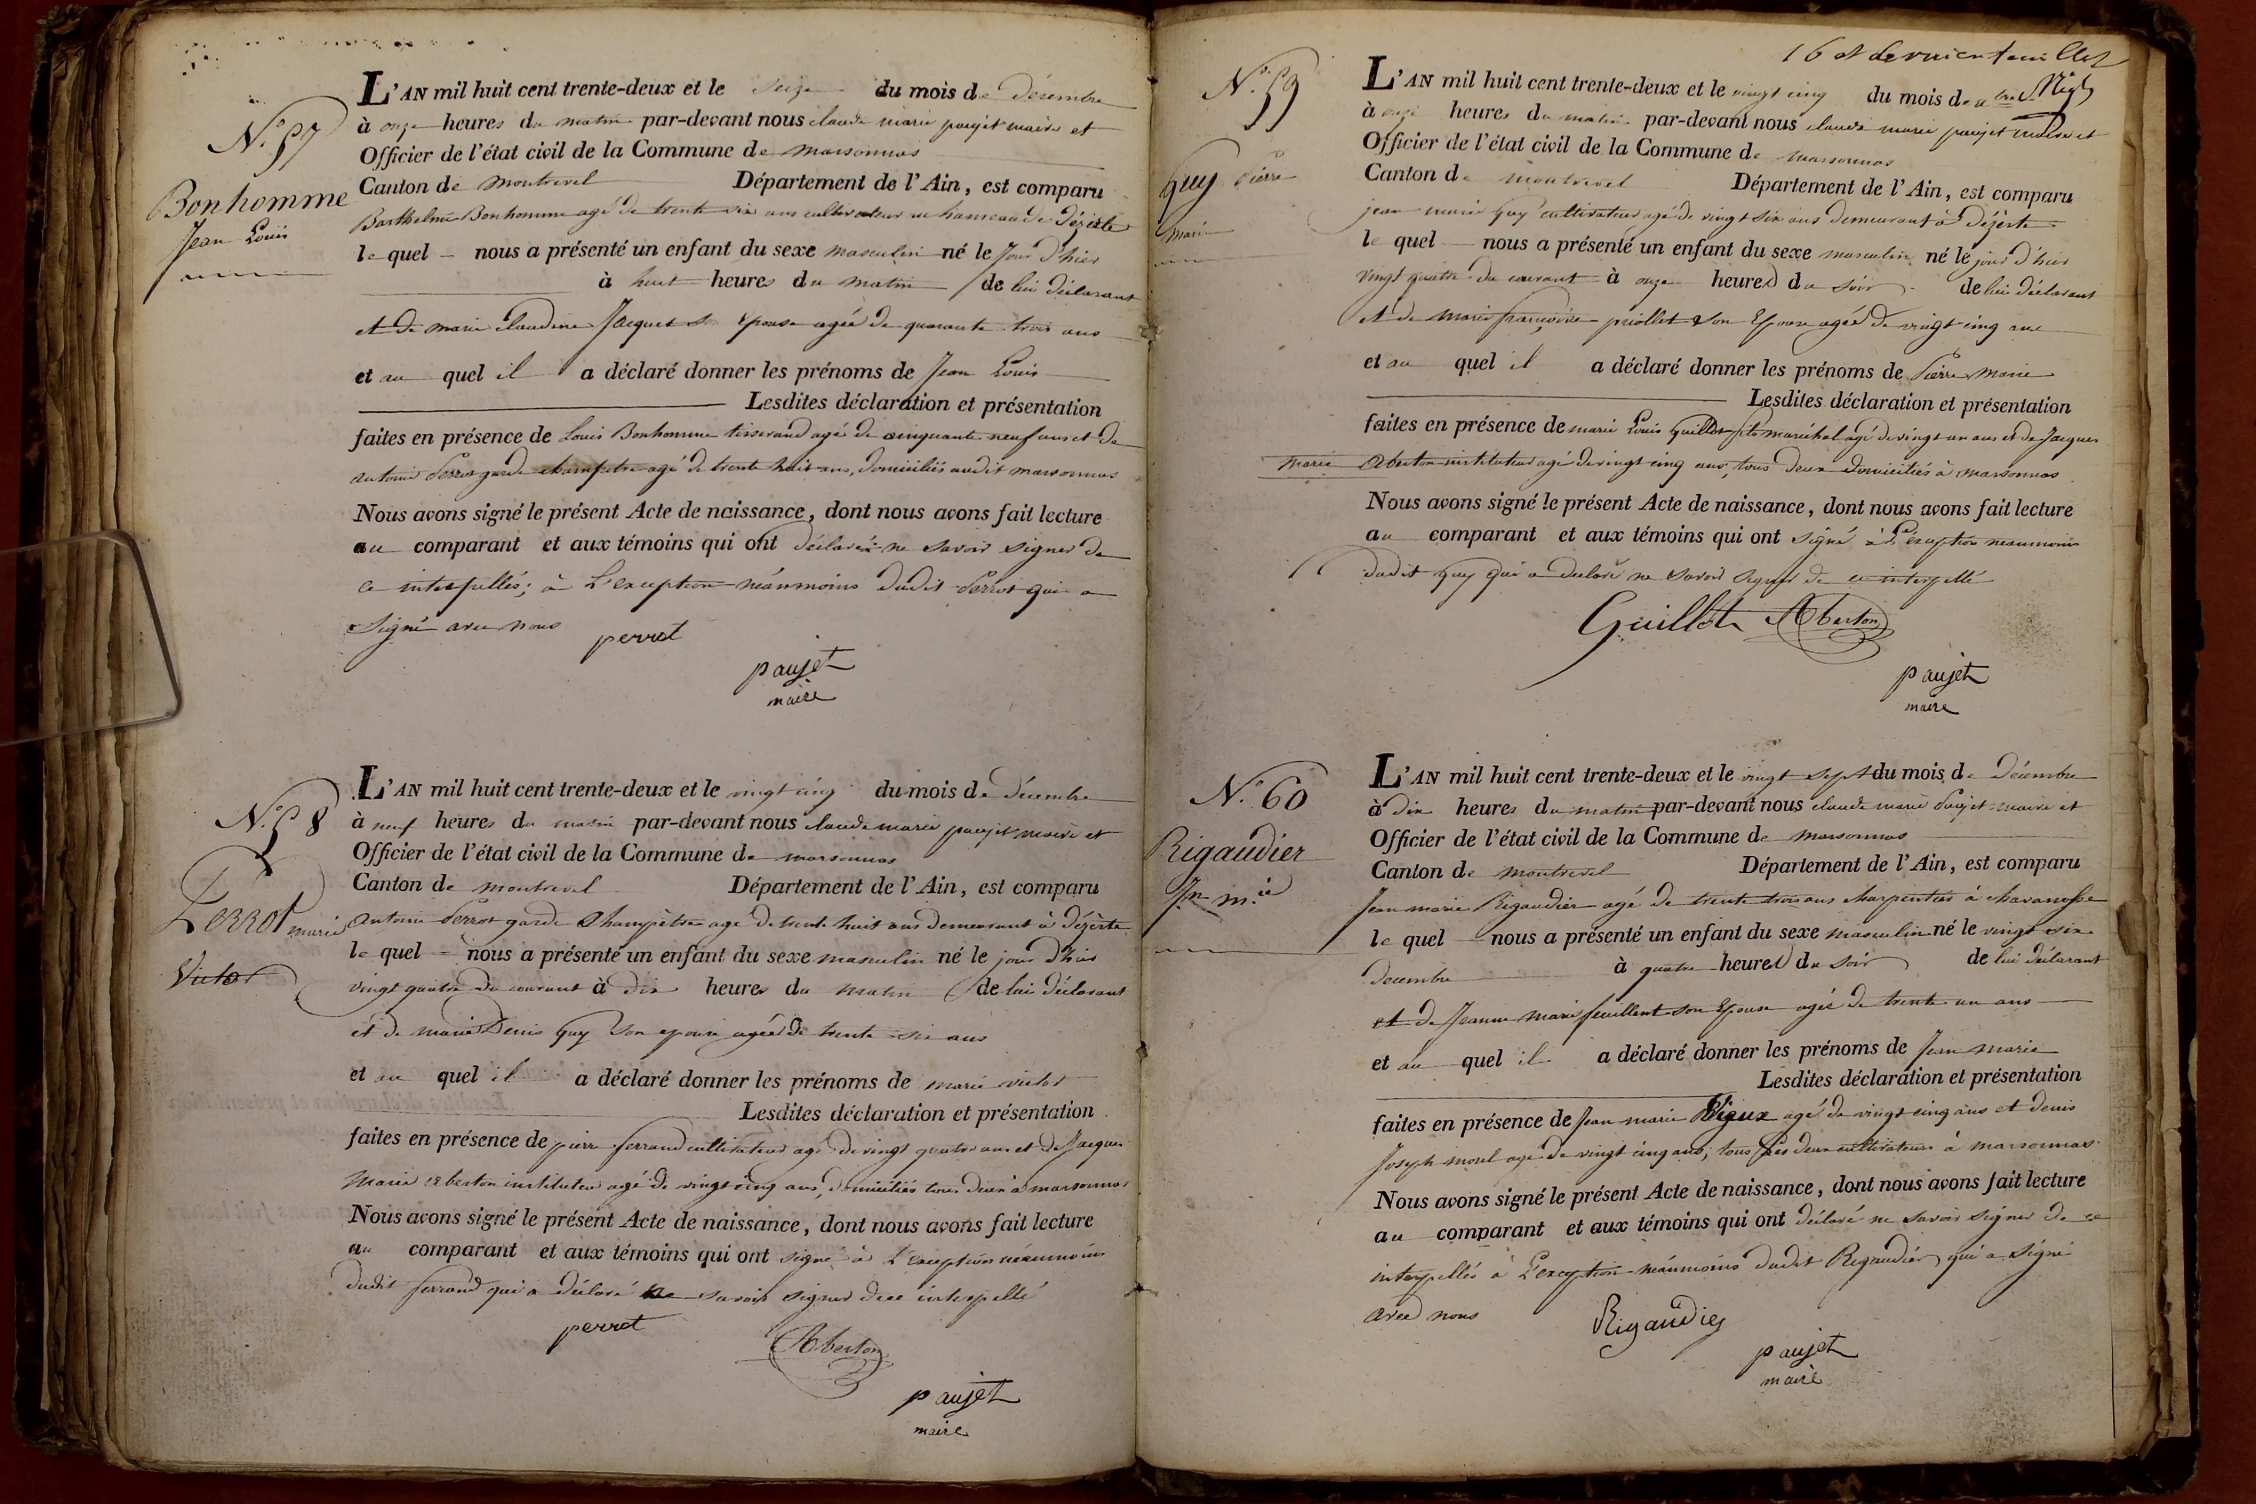 N.° 57
Bonhomme
Jean Louis
L'AN mil huit cent trente-deux et le seize du mois de décembre
à onze heures du matin par-devant nous claude marie paujet maire et
Officier de l'état civil de la Commune de marsonnas
Canton de montrevel Département de l'Ain, est comparu
Barthelmie Bonhomme agé de trente six ans cultivateur au hameau de Dézerte
le quel nous a présenté un enfant du sexe masculin né le jour d'hier
à huit heures du matin de lui déclarant
et de marie claudine Jacquet son épouse agée de quarante trois ans
et au quel il a déclaré donner les prénoms de Jean Louis
Lesdites déclaration et présentation
faites en présence de Louis Bonhomme tisserand agé de cinquante neuf ans et de
antoine Perrot garde champetre agé de trente huit ans, domiciliés audit marsonnas
Nous avons signé le présent Acte de naissance, dont nous avons fait lecture
au comparant et aux témoins qui ont déclaré ne savoir signer de
ce interpellés; à L'exception néanmoins dudit Perrot qui a
Signé avec nous
perrot
paujet
maire
N.° 58
Perrot marie
Victor
L'AN mil huit cent trente-deux et le vingt cinq du mois de décembre
à neuf heures du matin par-devant nous claude marie paujet maire et
Officier de l'état civil de la Commune de marsonnas
Canton de montrevel Département de l'Ain, est comparu
antoine Perrot garde champètre agé de trente huit ans demeurant à Dézerte
le quel nous a présenté un enfant du sexe masculin né le jour d'hier
vingt quatre du courant à dix heures du matin de lui déclarant
et de marie Denis Guy son epouse agée de trente six ans
et au quel il a déclaré donner les prénoms de marie victor
Lesdites déclaration et présentation
faites en présence de pierre ferrand cultivateur agé de vingt quatre ans et de Jacques
Marie Aberton instituteur agé de vingt cinq ans, domiciliés tous deux à marsonnas
Nous avons signé le présent Acte de naissance, dont nous avons fait lecture
au comparant et aux témoins qui ont signé à L'exception néanmoins
dudit ferrand qui a déclaré ne savoir signer de ce interpellé
perrot
Aberton
paujet
maire
16 et dernier feuillet
N.° 59
Guy Pierre
marie
L'AN mil huit cent trente-deux et le vingt cinq du mois de
à onze heures du matin par-devant nous claude marie paujet maire et
Officier de l'état civil de la Commune de marsonnas
Canton de montrevel Département de l'Ain, est comparu
jean marie Guy cultivateur agé de vingt six ans demeurant à Dézerte
le quel nous a présenté un enfant du sexe masculin né le jour d'hier
vingt quatre du courant à onze heures du soir de lui déclarant
et de marie françoise priollet son Epouse agée de vingt cinq ans
et au quel il a déclaré donner les prénoms de Pierre Marie
Lesdites déclaration et présentation
faites en présence de marie Louis Guillot fils maréchal agé de vingt un ans et de Jacques
marie Aberton instituteur agé de vingt cinq ans, tous deux domiciliés à marsonnas
Nous avons signé le présent Acte de naissance, dont nous avons fait lecture
au comparant et aux témoins qui ont signé à L'exception neanmoins
dudit Guy qui a declaré ne savoir signer de ce interpellé
Guillot Aberton
paujet
maire
N.° 60
Rigaudier
Jn m.ie
L'AN mil huit cent trente-deux et le vingt sept du mois de Décembre
à dix heures du matin par-devant nous claude marie Paujet maire et
Officier de l'état civil de la Commune de marsonnas
Canton de montrevel Département de l'Ain, est comparu
Jean marie Rigaudier agé de trente trois ans charpentier à chavanosse
le quel nous a présenté un enfant du sexe masculin né le vingt six
decembre à quatre heures du soir de lui déclarant
et de Jeanne marie feuillent son Epouse agée de trente un ans
et au quel il a déclaré donner les prénoms de Jean marie
Lesdites déclaration et présentation
faites en présence de Jean marie agé de vingt cinq ans et denis
Joseph morel agé de vingt cinq ans, tous les deux cultivateurs à marsonnas
Nous avons signé le présent Acte de naissance, dont nous avons fait lecture
au comparant et aux témoins qui ont déclaré ne savoir signer de ce
interpellés à L'exception néanmoins dudit Rigaudier qui a signé
avec nous
Rigaudier
paujet
maire